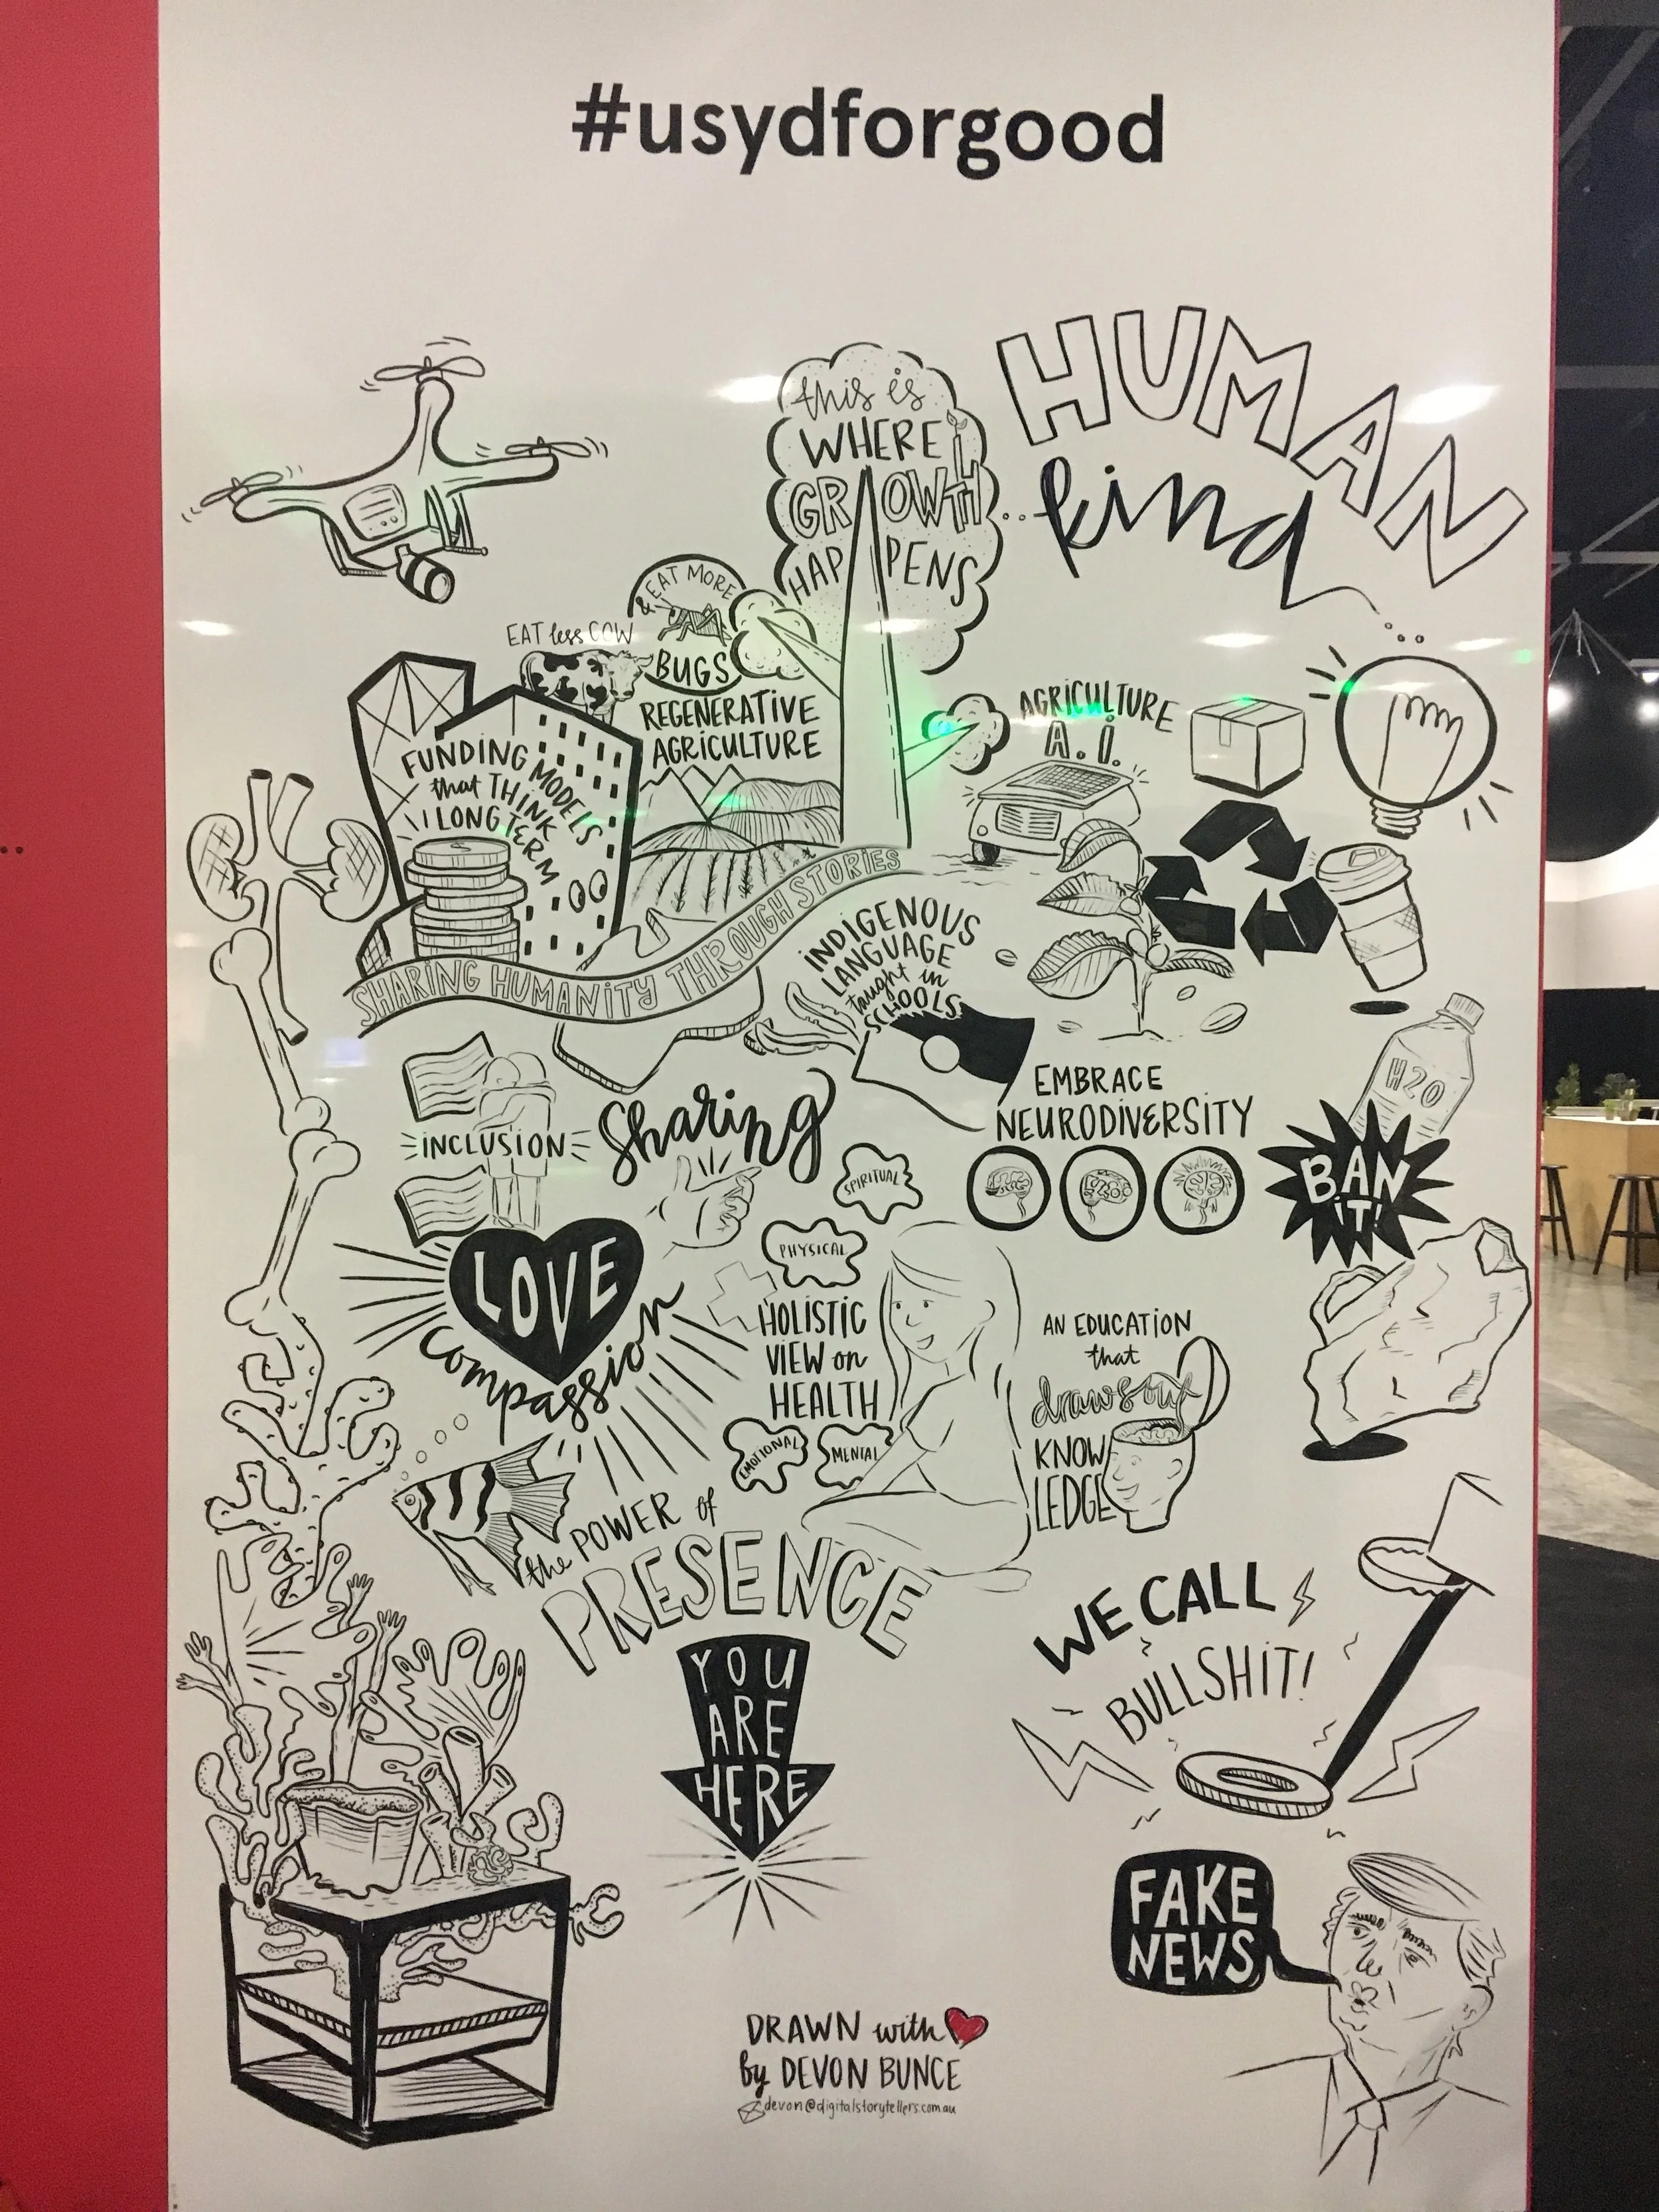 #usydforgood
HUMAN
kind
this is
WHERE
GROWTH
HAPPENS
EAT less COW
& EAT MORE
BUGS
REGENERATIVE
AGRICULTURE
AGRICULTURE
A.I.
FUNDING MODELS
that THINK
LONG TERM
SHARING HUMANITY THROUGH STORIES
INDIGENOUS
LANGUAGE
taught in
SCHOOLS
INCLUSION
Sharing
EMBRACE
NEURODIVERSITY
H2O
BAN
IT!
SPIRITUAL
PHYSICAL
HOLISTIC
VIEW on
HEALTH
EMOTIONAL
MENTAL
LOVE
compassion
AN EDUCATION
that
draws out
KNOW
LEDGE
the POWER of
PRESENCE
YOU
ARE
HERE
WE CALL
BULLSHIT!
FAKE
NEWS
DRAWN with
by DEVON BUNCE
devon@digitalstorytellers.com.au